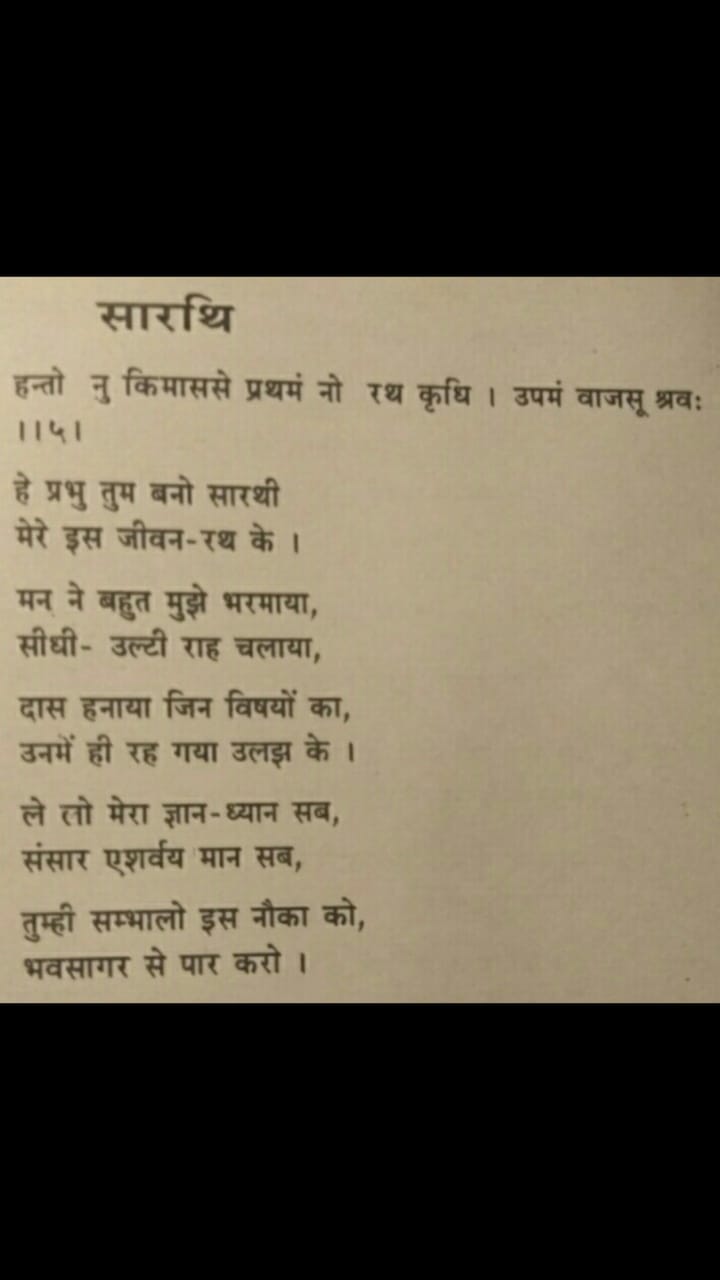 सारथि
हन्तो नु किमाससे प्रथमं नो रथ कृधि । उपमं वाजसू श्रवः
।।५।
हे प्रभु तुम बनो सारथी
मेरे इस जीवन-रथ के ।
मन ने बहुत मुझे भरमाया,
सीधी- उल्टी राह चलाया,
दास हनाया जिन विषयों का,
उनमें ही रह गया उलझ के ।
ले लो मेरा ज्ञान-ध्यान सब,
संसार एशर्वय मान सब,
तुम्ही सम्भालो इस नौका को,
भवसागर से पार करो ।